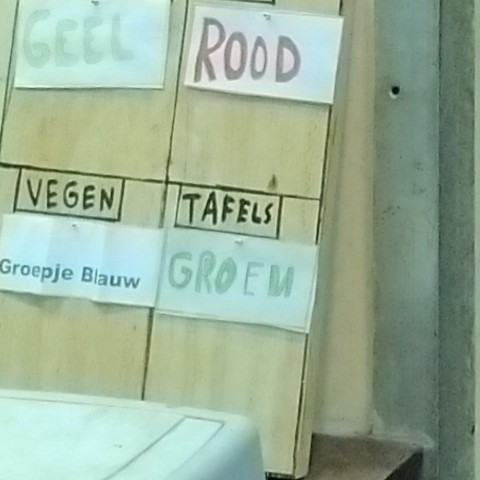 GEEL
ROOD
VEGEN
TAFELS
Groepje Blauw
GROEN